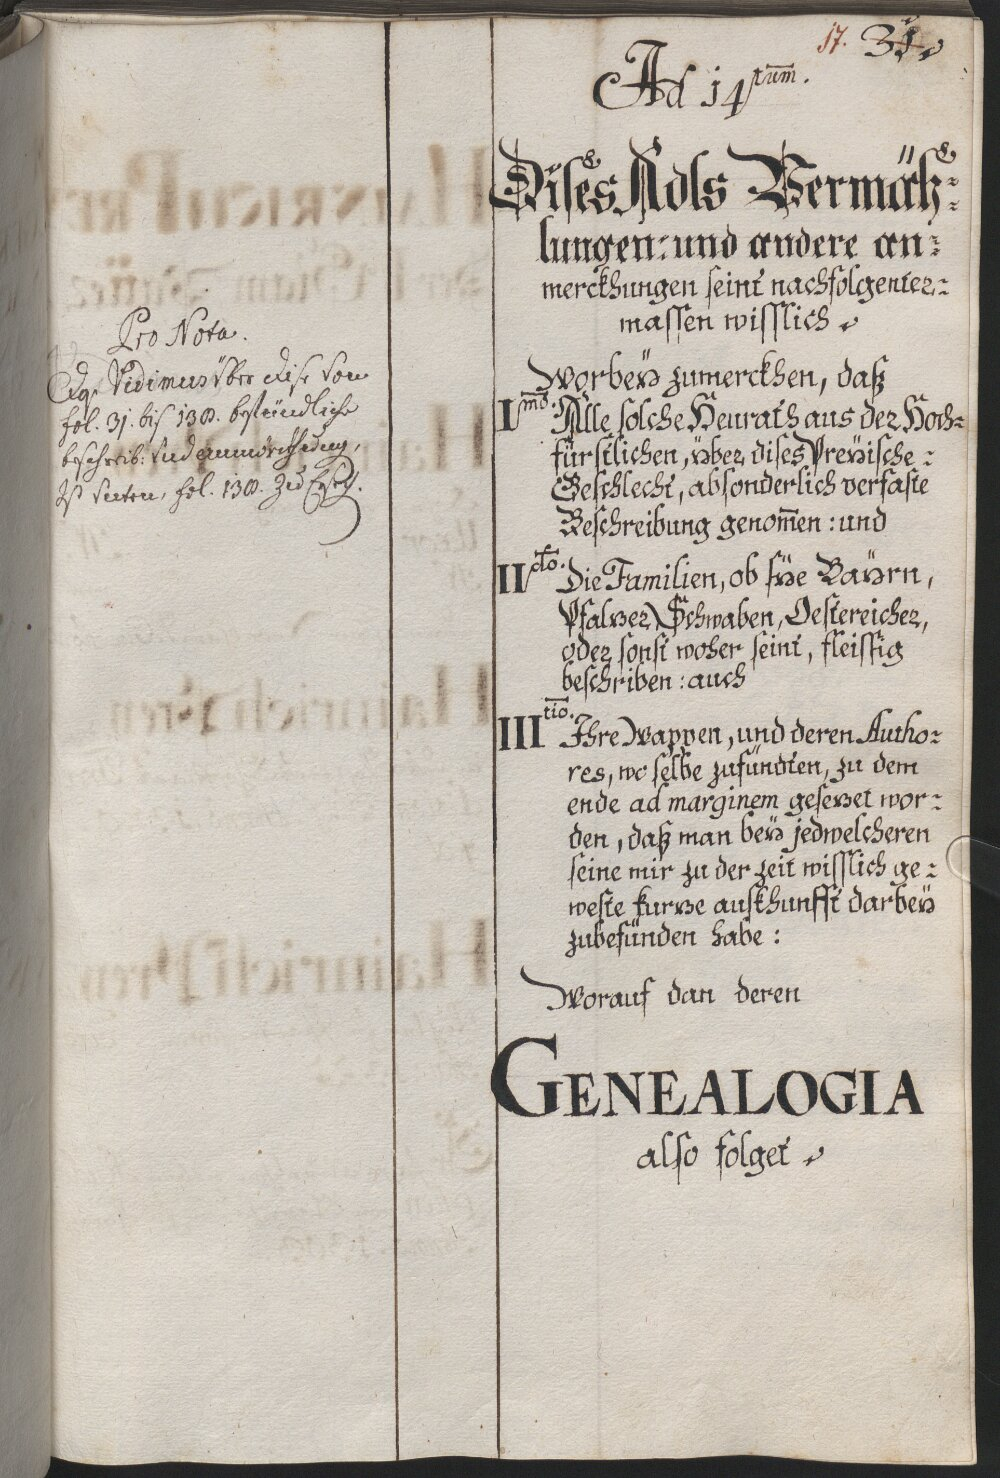 17. 31.
Ad 14tum.
Dises Adls Vermäh=
lungen: und andere an=
merckhungen seint nachfolgenter=
massen wisslich.
Pro Nota.
Vidimus über dise von
fol. 31. bis 130. befündliche
beschreib: und anmörckhung,
ist unten, fol. 130. zu
Worbeÿ zumerckhen, daß
Imo. Alle solche Heurath aus der Hoch=
fürstlichen, über dises Preÿische=
Geschlecht, absonderlich verfaste
Beschreibung genom̄en: und
IIdo. Die Familien, ob sÿe Baÿrn,
Pfalzer, Schwaben, Oestereicher,
oder sonst woher seint, fleissig
beschriben: auch
IIItio. Ihre Wappen, und deren Autho=
res, wo selbe zufündten, zu dem
ende ad marginem gesezet wor=
den, daß man beÿ jedwelcheren
seine mir zu der zeit wisslich ge=
weste kurze auskhunfft darbeÿ
zubefünden habe:
Worauf dan deren
GENEALOGIA
also folget.